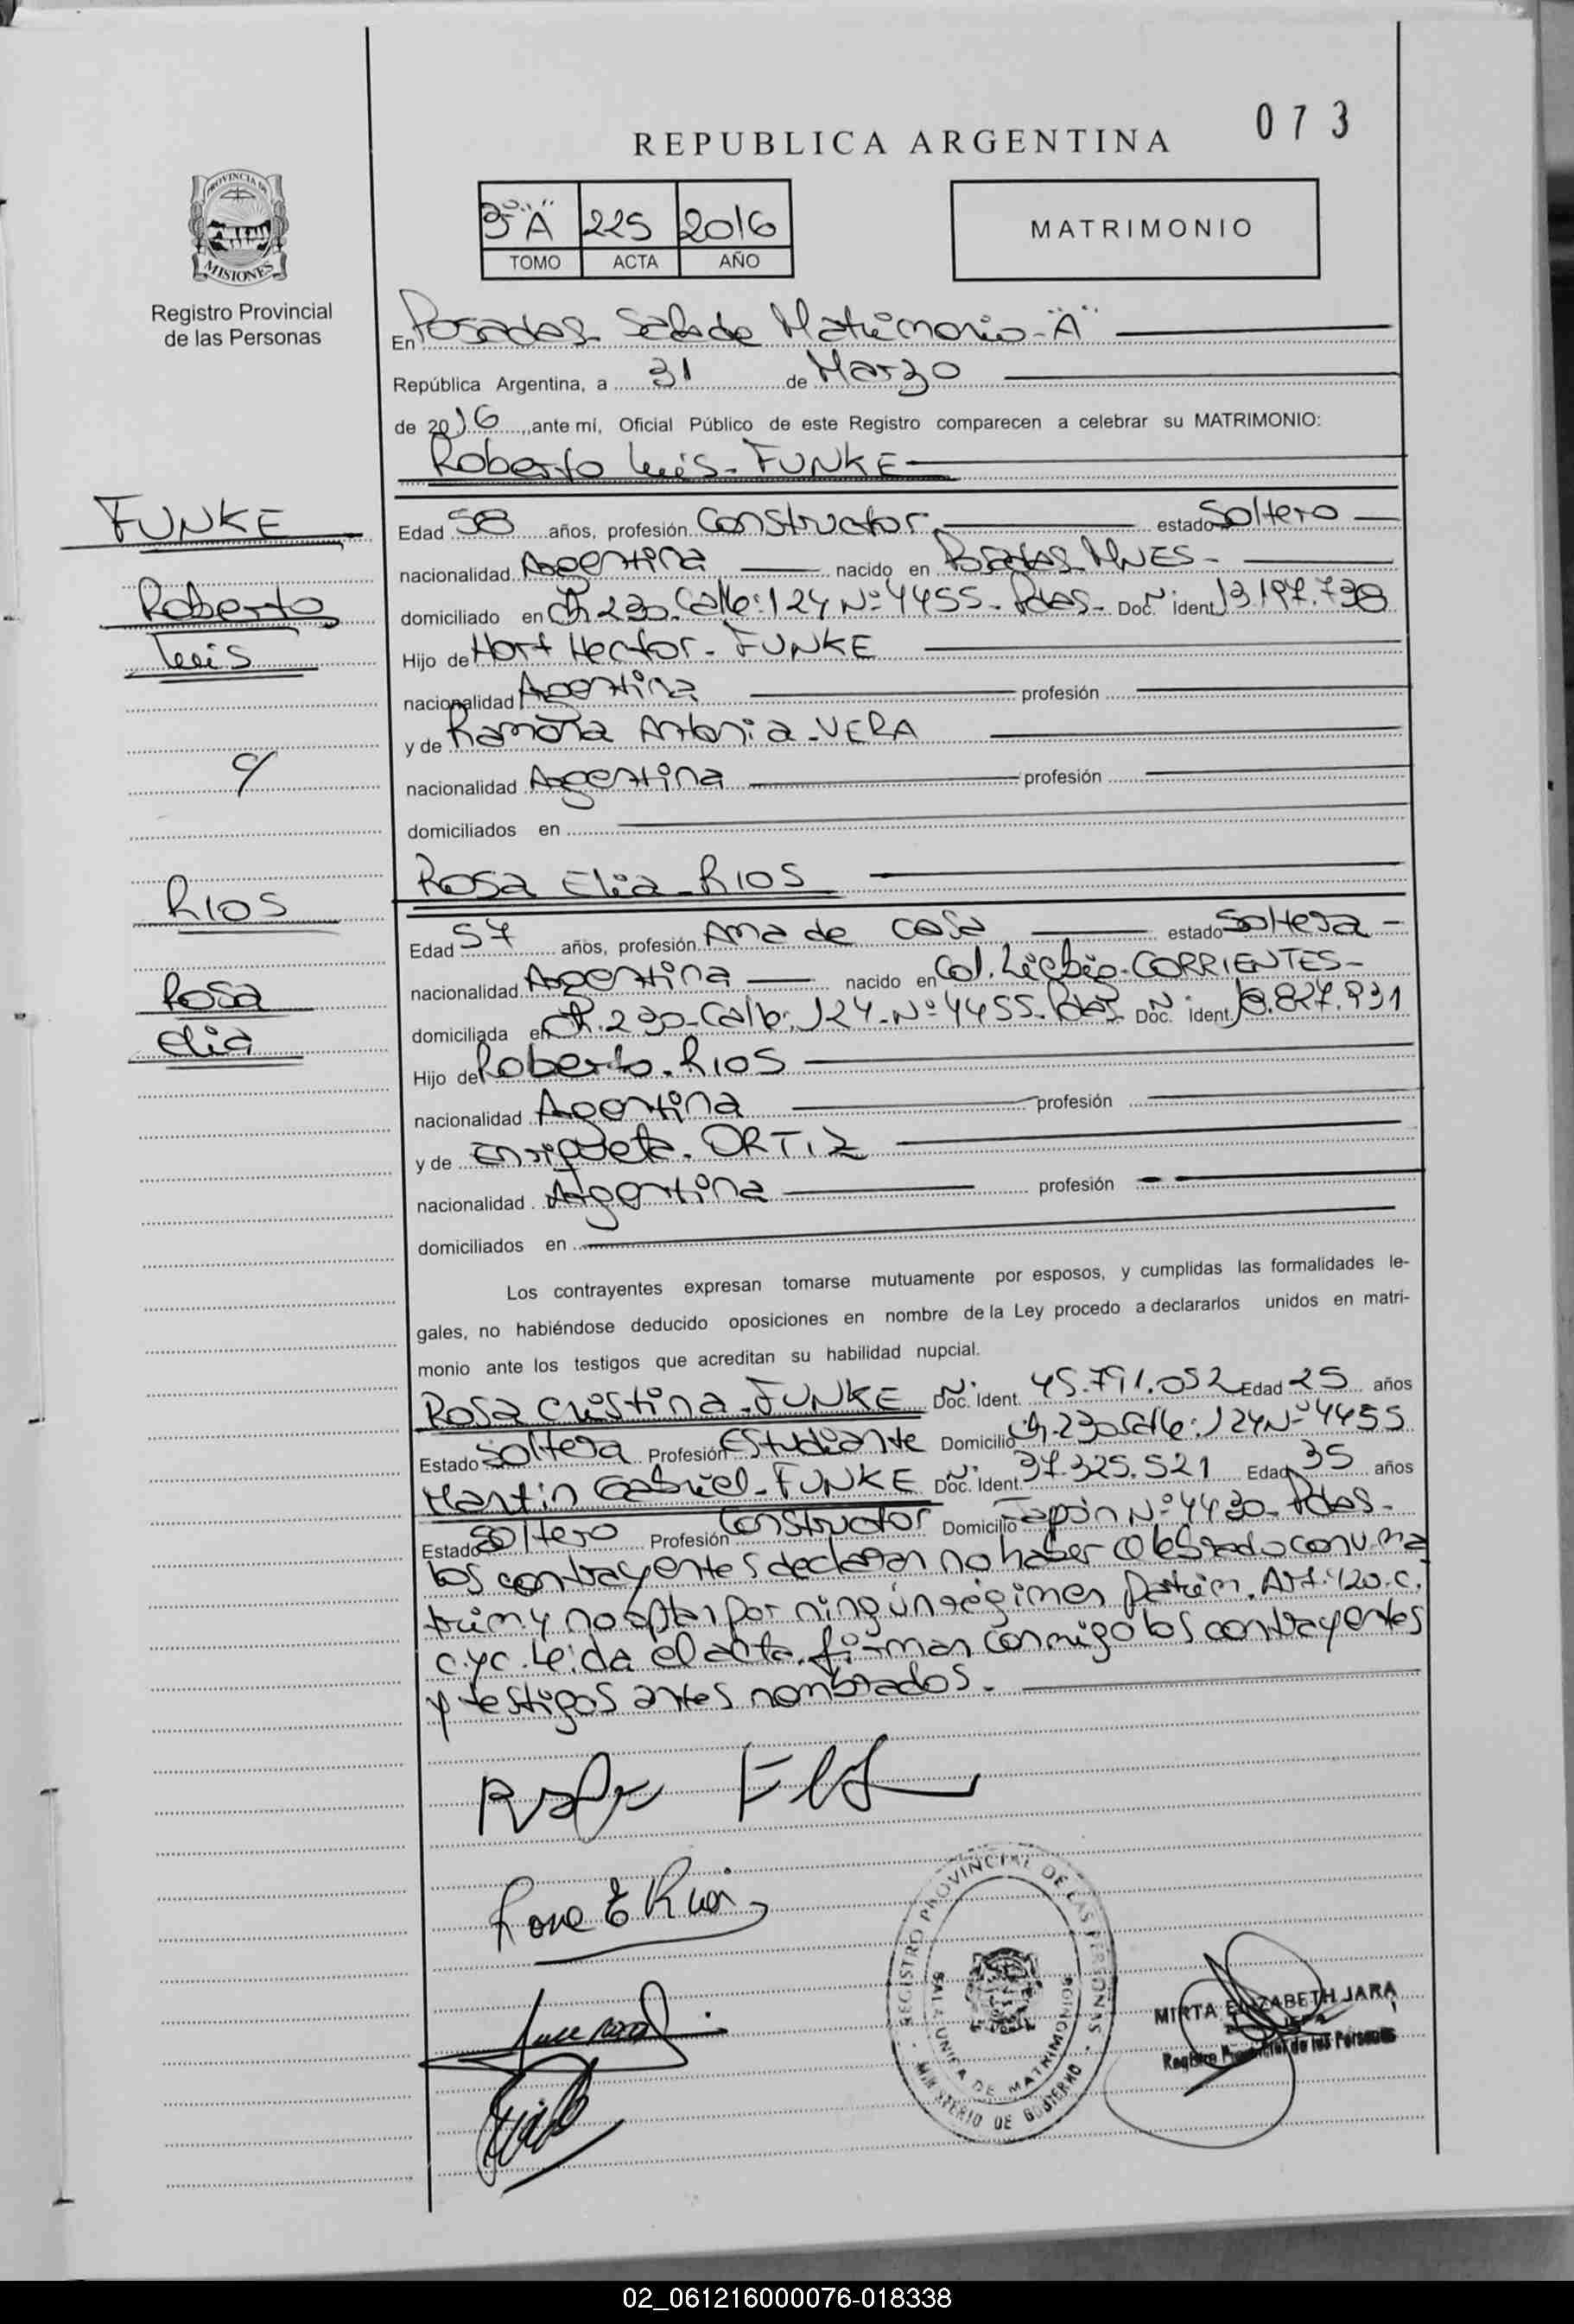 073
REPUBLICA ARGENTINA
PROVINCIA DE
MISIONES
Registro Provincial
de las Personas
3º "A" 225 2016
TOMO ACTA AÑO
MATRIMONIO
En Posadas Sala de Matrimonio "A"
República Argentina, a 31 de Marzo
de 2016, ante mí, Oficial Público de este Registro comparecen a celebrar su MATRIMONIO:
Roberto Luis - FUNKE
FUNKE
Roberto
Luis
c/
RIOS
Rosa
Elia
Edad 58 años, profesión Constructor estado Soltero
nacionalidad Argentina nacido en Posadas MNES -
domiciliado en Ch. 230. Calle: 124 Nº 4455 - Pdas - Doc. Nº ident 13.197.738
Hijo de Hort Hector - FUNKE
nacionalidad Argentina profesión
y de Ramona Antonia - VERA
nacionalidad Argentina profesión
domiciliados en
Rosa Elia - RIOS
Edad 57 años, profesión Ama de casa estado Soltera -
nacionalidad Argentina nacido en Col. Liebig - CORRIENTES -
domiciliada en Ch. 230 - Calle: 124 - Nº 4455 - Pdas Doc. Nº ident. .827.931
Hijo de Roberto - RIOS
nacionalidad Argentina profesión
y de Enriqueta - ORTIZ
nacionalidad Argentina profesión
domiciliados en
Los contrayentes expresan tomarse mutuamente por esposos, y cumplidas las formalidades le-
gales, no habiéndose deducido oposiciones en nombre de la Ley procedo a declararlos unidos en matri-
monio ante los testigos que acreditan su habilidad nupcial.
Rosa Cristina - FUNKE Doc. Nº Ident. 45.791.052 Edad 25 años
Estado Soltera Profesión Estudiante Domicilio Ch. 230 Calle: 124 Nº 4455
Martin Gabriel - FUNKE Doc. Nº Ident. 37.325.521 Edad 35 años
Estado Soltero Profesión Constructor Domicilio Japón Nº 4430 - Pdas -
los contrayentes declaran no haber celebrado conv. ma
trim. y no optan por ningún régimen Patrim. Art. 420. C.
C. y C. Leida el acta, firman conmigo los contrayentes
y testigos antes nombrados. -
Rosa E Rios
REGISTRO PROVINCIAL DE LAS PERSONAS
SALA UNICA DE MATRIMONIOS
MINISTERIO DE GOBIERNO
MIRTA ELIZABETH JARA
Registro Provincial de las Personas
02_061216000076-018338